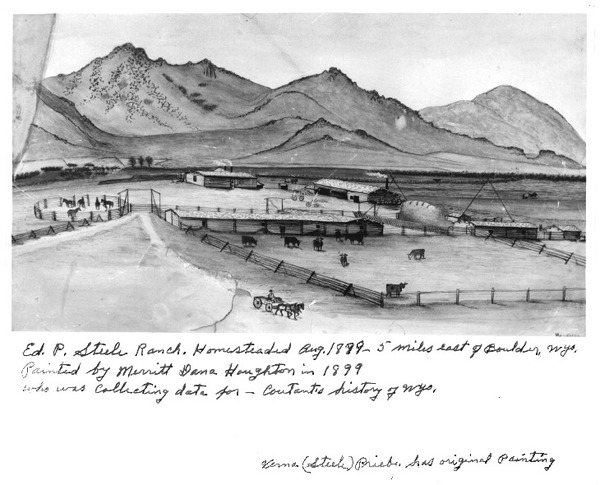 Ed. P. Steele Ranch. Homesteaded Aug. 1889 - 5 miles east of Boulder, Wyo.
Painted by Merritt Dana Houghton in 1899
who was collecting data for - Coutant's history of Wyo.
Verna (Steele) Priebe has original Painting